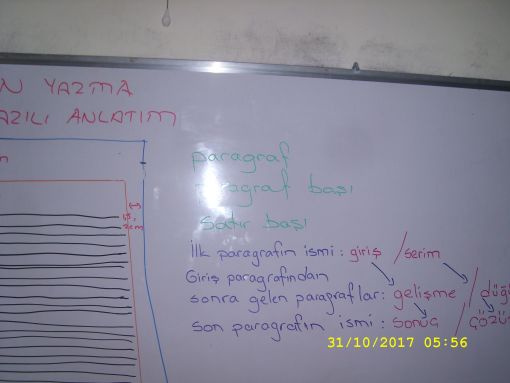 N YAZMA
AZILI ANLATIM
paragraf
paragraf başı
satır başı
İlk paragrafın ismi : giriş / serim
Giriş paragrafından
sonra gelen paragraflar: gelişme / düğü
Son paragrafın ismi : sonuç / çözü
1,5,
2cm
31/10/2017 05:56